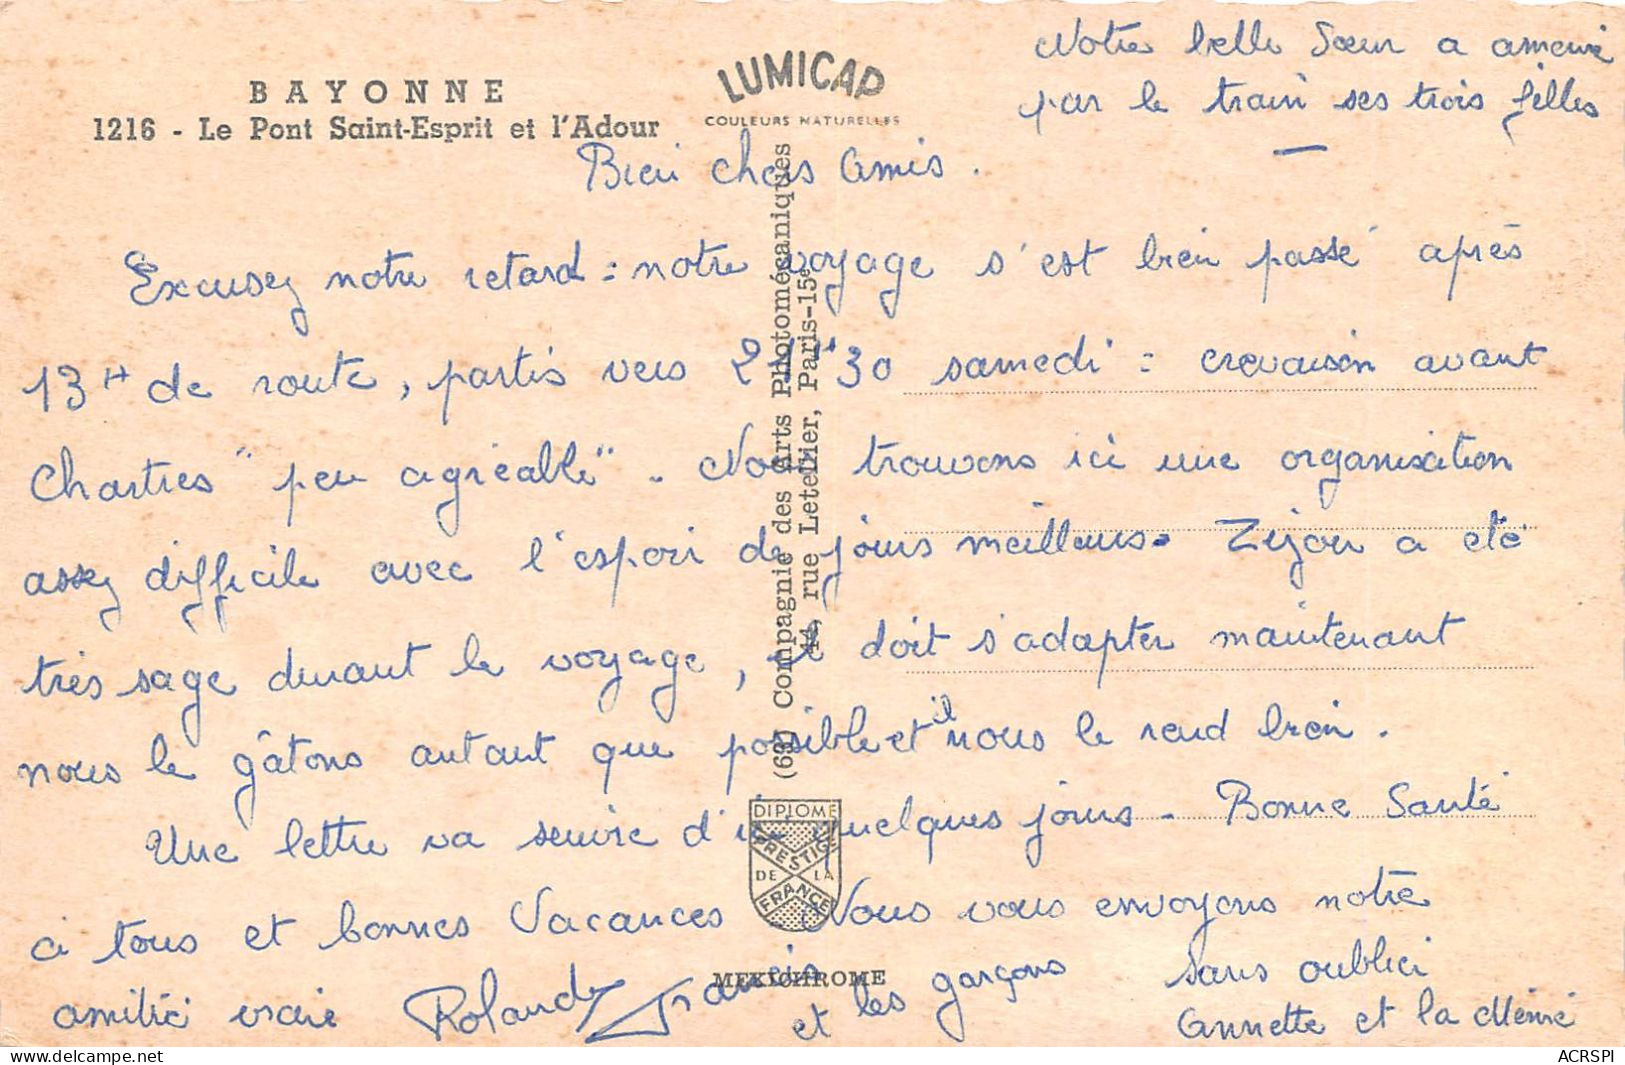 Notre belle Sœur a amené
par le train ses trois filles
BAYONNE
1216 - Le Pont Saint-Esprit et l'Adour
LUMICAP
COULEURS NATURELLES
Bien chers Amis.
Excusez notre retard : notre voyage s'est bien passé après
13H de route, partis vers 21H30 samedi : crevaison avant
Chartres "peu agréable". Nous trouvons ici une organisation
assez difficile avec l'espoir de jours meilleurs. Zijou a été
très sage durant le voyage, et doit s'adapter maintenant
nous le gâtons autant que possible et il nous le rend bien.
Une lettre va suivre d'ici quelques jours - Bonne Santé
à tous et bonnes Vacances Nous vous envoyons notre
amitié vraie Rolande Francis et les garçons sans oublier
Annette et la Mémé
(69) Compagnie des Arts Photomécaniques
44, rue Letellier, Paris-15e
DIPLOME
PRESTIGE
DE LA
FRANCE
MEXICHROME
ACRSPI